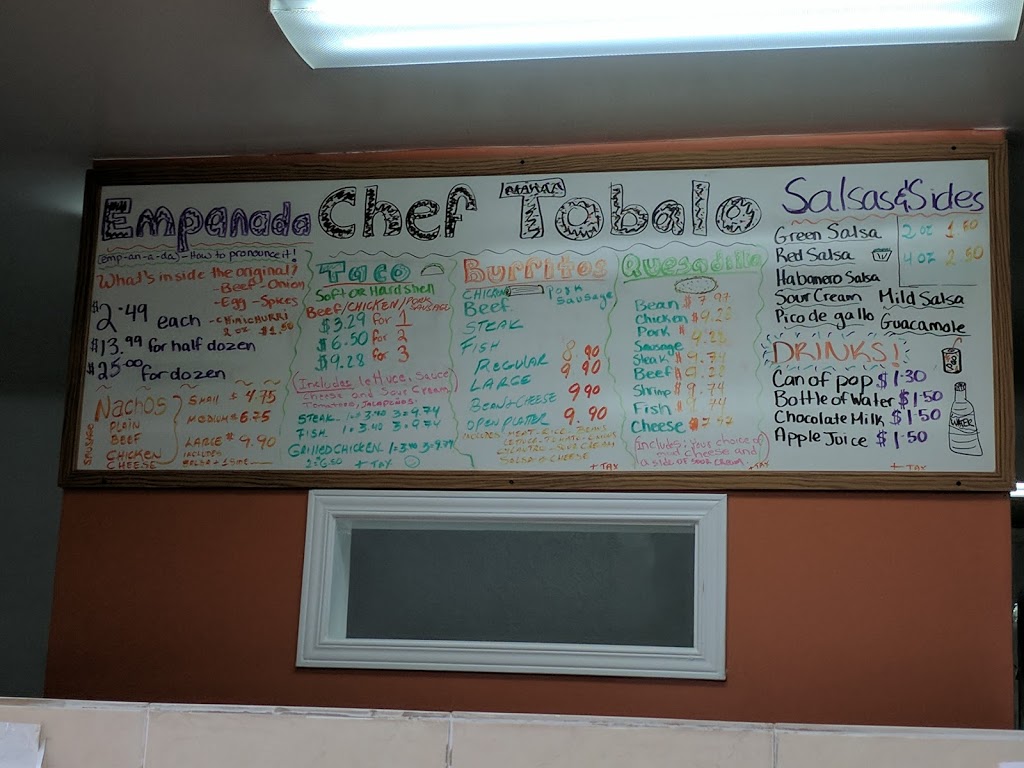 Empanada
(emp-an-a-da)-How to pronounce it!
What's inside the original?
-Beef -Onion
-Egg -Spices
-CHIMICHURRI
2 oz $1.50
$2.49 each
$13.99 for half dozen
$25.00 for dozen
Nachos
PLAIN
BEEF
CHICKEN
CHEESE
SMALL $4.75
MEDIUM $6.75
LARGE $9.90
INCLUDES
Chef Tobalo
Taco
Soft OR Hard shell
Beef/CHICKEN/PORK SAUSAGE
$3.29 for 1
$6.50 for 2
$9.28 for 3
(Includes lettuce, sauce
cheese and sour cream
Tomatoes, JALAPEÑOS.
STEAK 1=3.40 3=9.74
FISH 1=3.40 3=9.74
Grilled CHICKEN 1=3.40 3=9.79
2=6.50 + TAX
Burritos
CHICKEN
Beef
STEAK
FISH
Pork Sausage
REGULAR 8.90
LARGE 9.90
BEAN & CHEESE 9.90
OPEN PLATTER 9.90
INCLUDES MEAT - RICE - BEANS
SALSA & CHEESE
+ TAX
Quesadilla
Bean $7.97
Chicken $9.23
Pork Sausage
Steak $9.74
Beef $9.20
Shrimp $9.74
Fish $9.74
Cheese
Includes: your choice of
meat cheese and
a side of sour cream
+TAX
Salsas & Sides
Green Salsa
Red Salsa
Habanero Salsa
Sour Cream Mild Salsa
Pico de gallo Guacamole
2 oz 1.50
4 oz 2.50
DRINKS!
Can of pop $1.30
Bottle of water $1.50
Chocolate Milk $1.50
Apple Juice $1.50
WATER
+ TAX